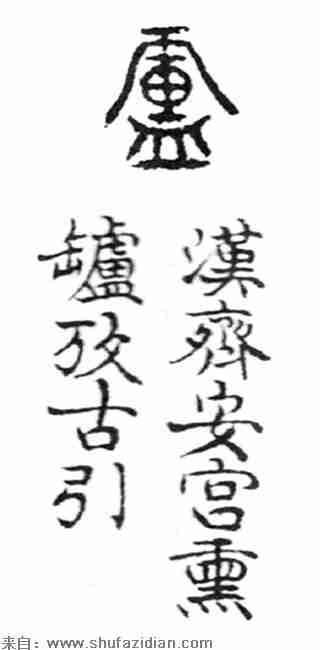 盧
漢齊安宮熏
罏攷古引
来自：www.shufazidian.com